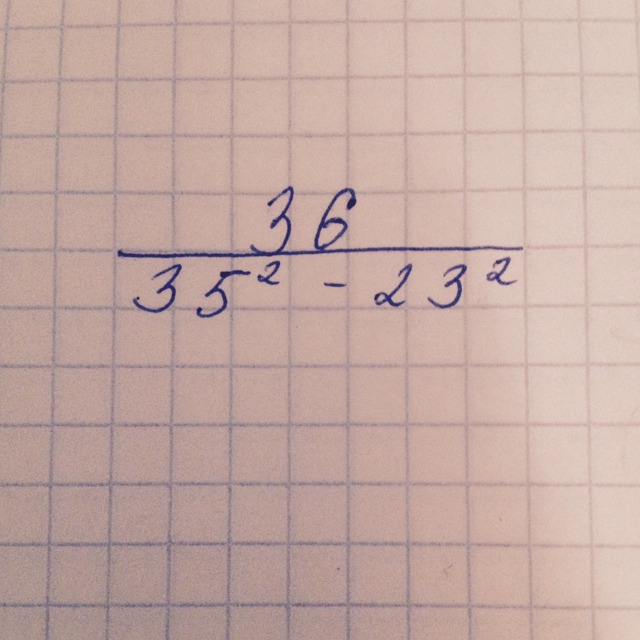 36
35² - 23²